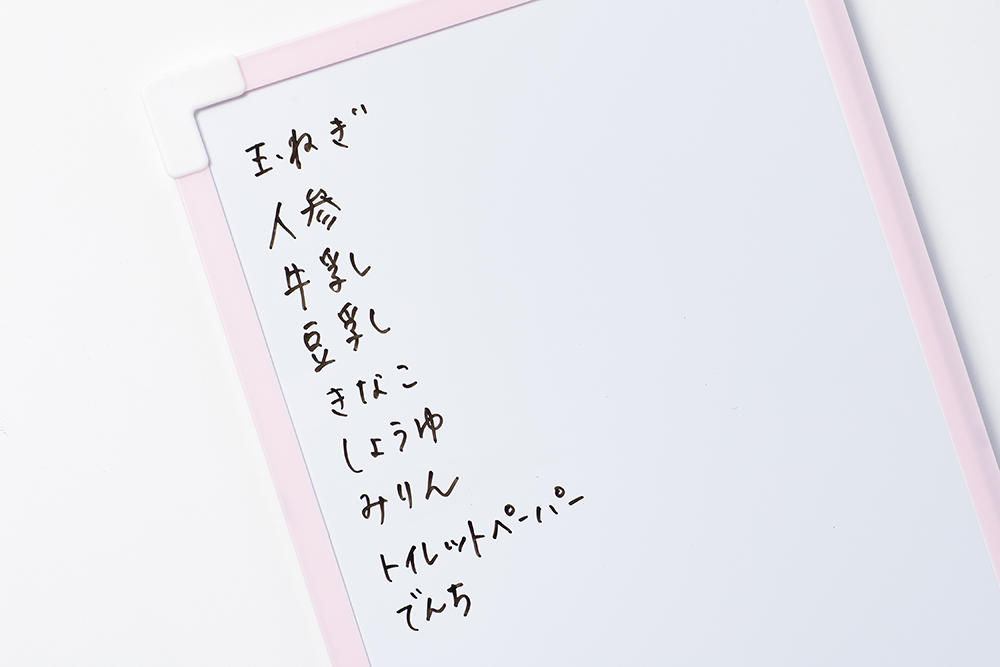 玉ねぎ
人参
牛乳
豆乳
きなこ
しょうゆ
みりん
トイレットペーパー
でんち